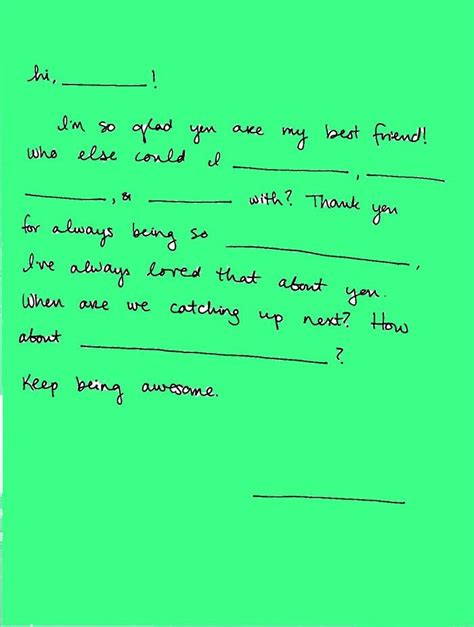 hi, ________!
I'm so glad you are my best friend!
Who else could I ________, ________
________, & ________ with? Thank you
for always being so ________,
I've always loved that about you.
When are we catching up next? How
about ________?
Keep being awesome.
________